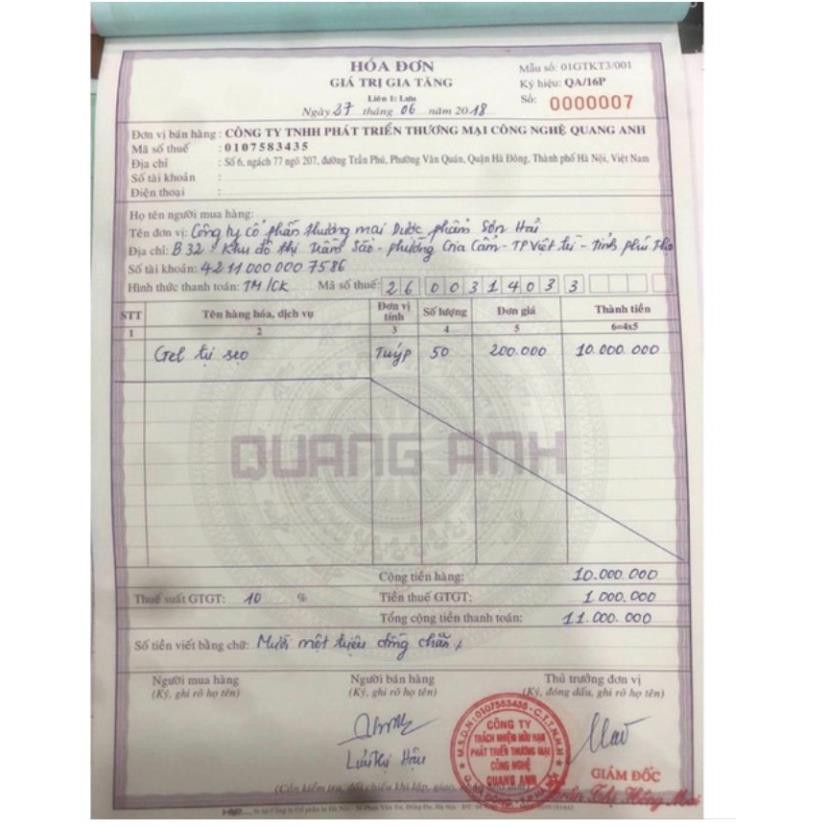 HÓA ĐƠN
GIÁ TRỊ GIA TĂNG
Liên 1: Lưu
Ngày 27 tháng 06 năm 2018
Mẫu số: 01GTKT3/001
Ký hiệu: QA/16P
Số: 0000007
Đơn vị bán hàng : CÔNG TY TNHH PHÁT TRIỂN THƯƠNG MẠI CÔNG NGHỆ QUANG ANH
Mã số thuế : 0107583435
Địa chỉ : Số 6, ngách 77 ngõ 207, đường Trần Phú, Phường Văn Quán, Quận Hà Đông, Thành phố Hà Nội, Việt Nam
Số tài khoản :
Điện thoại :
Họ tên người mua hàng:
Tên đơn vị: Công ty cổ phần thương mại Dược phẩm Sơn Hải
Địa chỉ: B32 - Khu đô thị Trầm Sào - phường Gia Cẩm - TP Việt trì - Tỉnh phú thọ
Số tài khoản: 4211000000 7586
Hình thức thanh toán: TM/CK Mã số thuế: 2600314033
STT Tên hàng hóa, dịch vụ Đơn vị tính Số lượng Đơn giá Thành tiền
1 2 3 4 5 6=4x5
Gel trị sẹo Tuýp 50 200.000 10.000.000
QUANG ANH
Cộng tiền hàng: 10.000.000
Thuế suất GTGT: 10 % Tiền thuế GTGT: 1.000.000
Tổng cộng tiền thanh toán: 11.000.000
Số tiền viết bằng chữ: Mười một triệu đồng chẵn
Người mua hàng Người bán hàng Thủ trưởng đơn vị
(Ký, ghi rõ họ tên) (Ký, ghi rõ họ tên) (Ký, đóng dấu, ghi rõ họ tên)
M.S.D.N: 0107583435 - C.T.T.N.H.H
CÔNG TY
TRÁCH NHIỆM HỮU HẠN
PHÁT TRIỂN THƯƠNG MẠI
CÔNG NGHỆ
QUANG ANH
Hậu
GIÁM ĐỐC
Trần Thị Hồng Mai
(Cần kiểm tra, đối chiếu khi lập, giao,